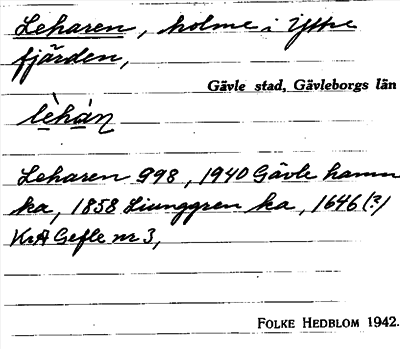 Leharen, holme i Yttre
fjärden,
Gävle stad, Gävleborgs län
lèhán
Leharen 998, 1940 Gävle hamn
ka, 1858 Ljunggren ka, 1646 (?)
KrA Gefle nr 3,
FOLKE HEDBLOM 1942.